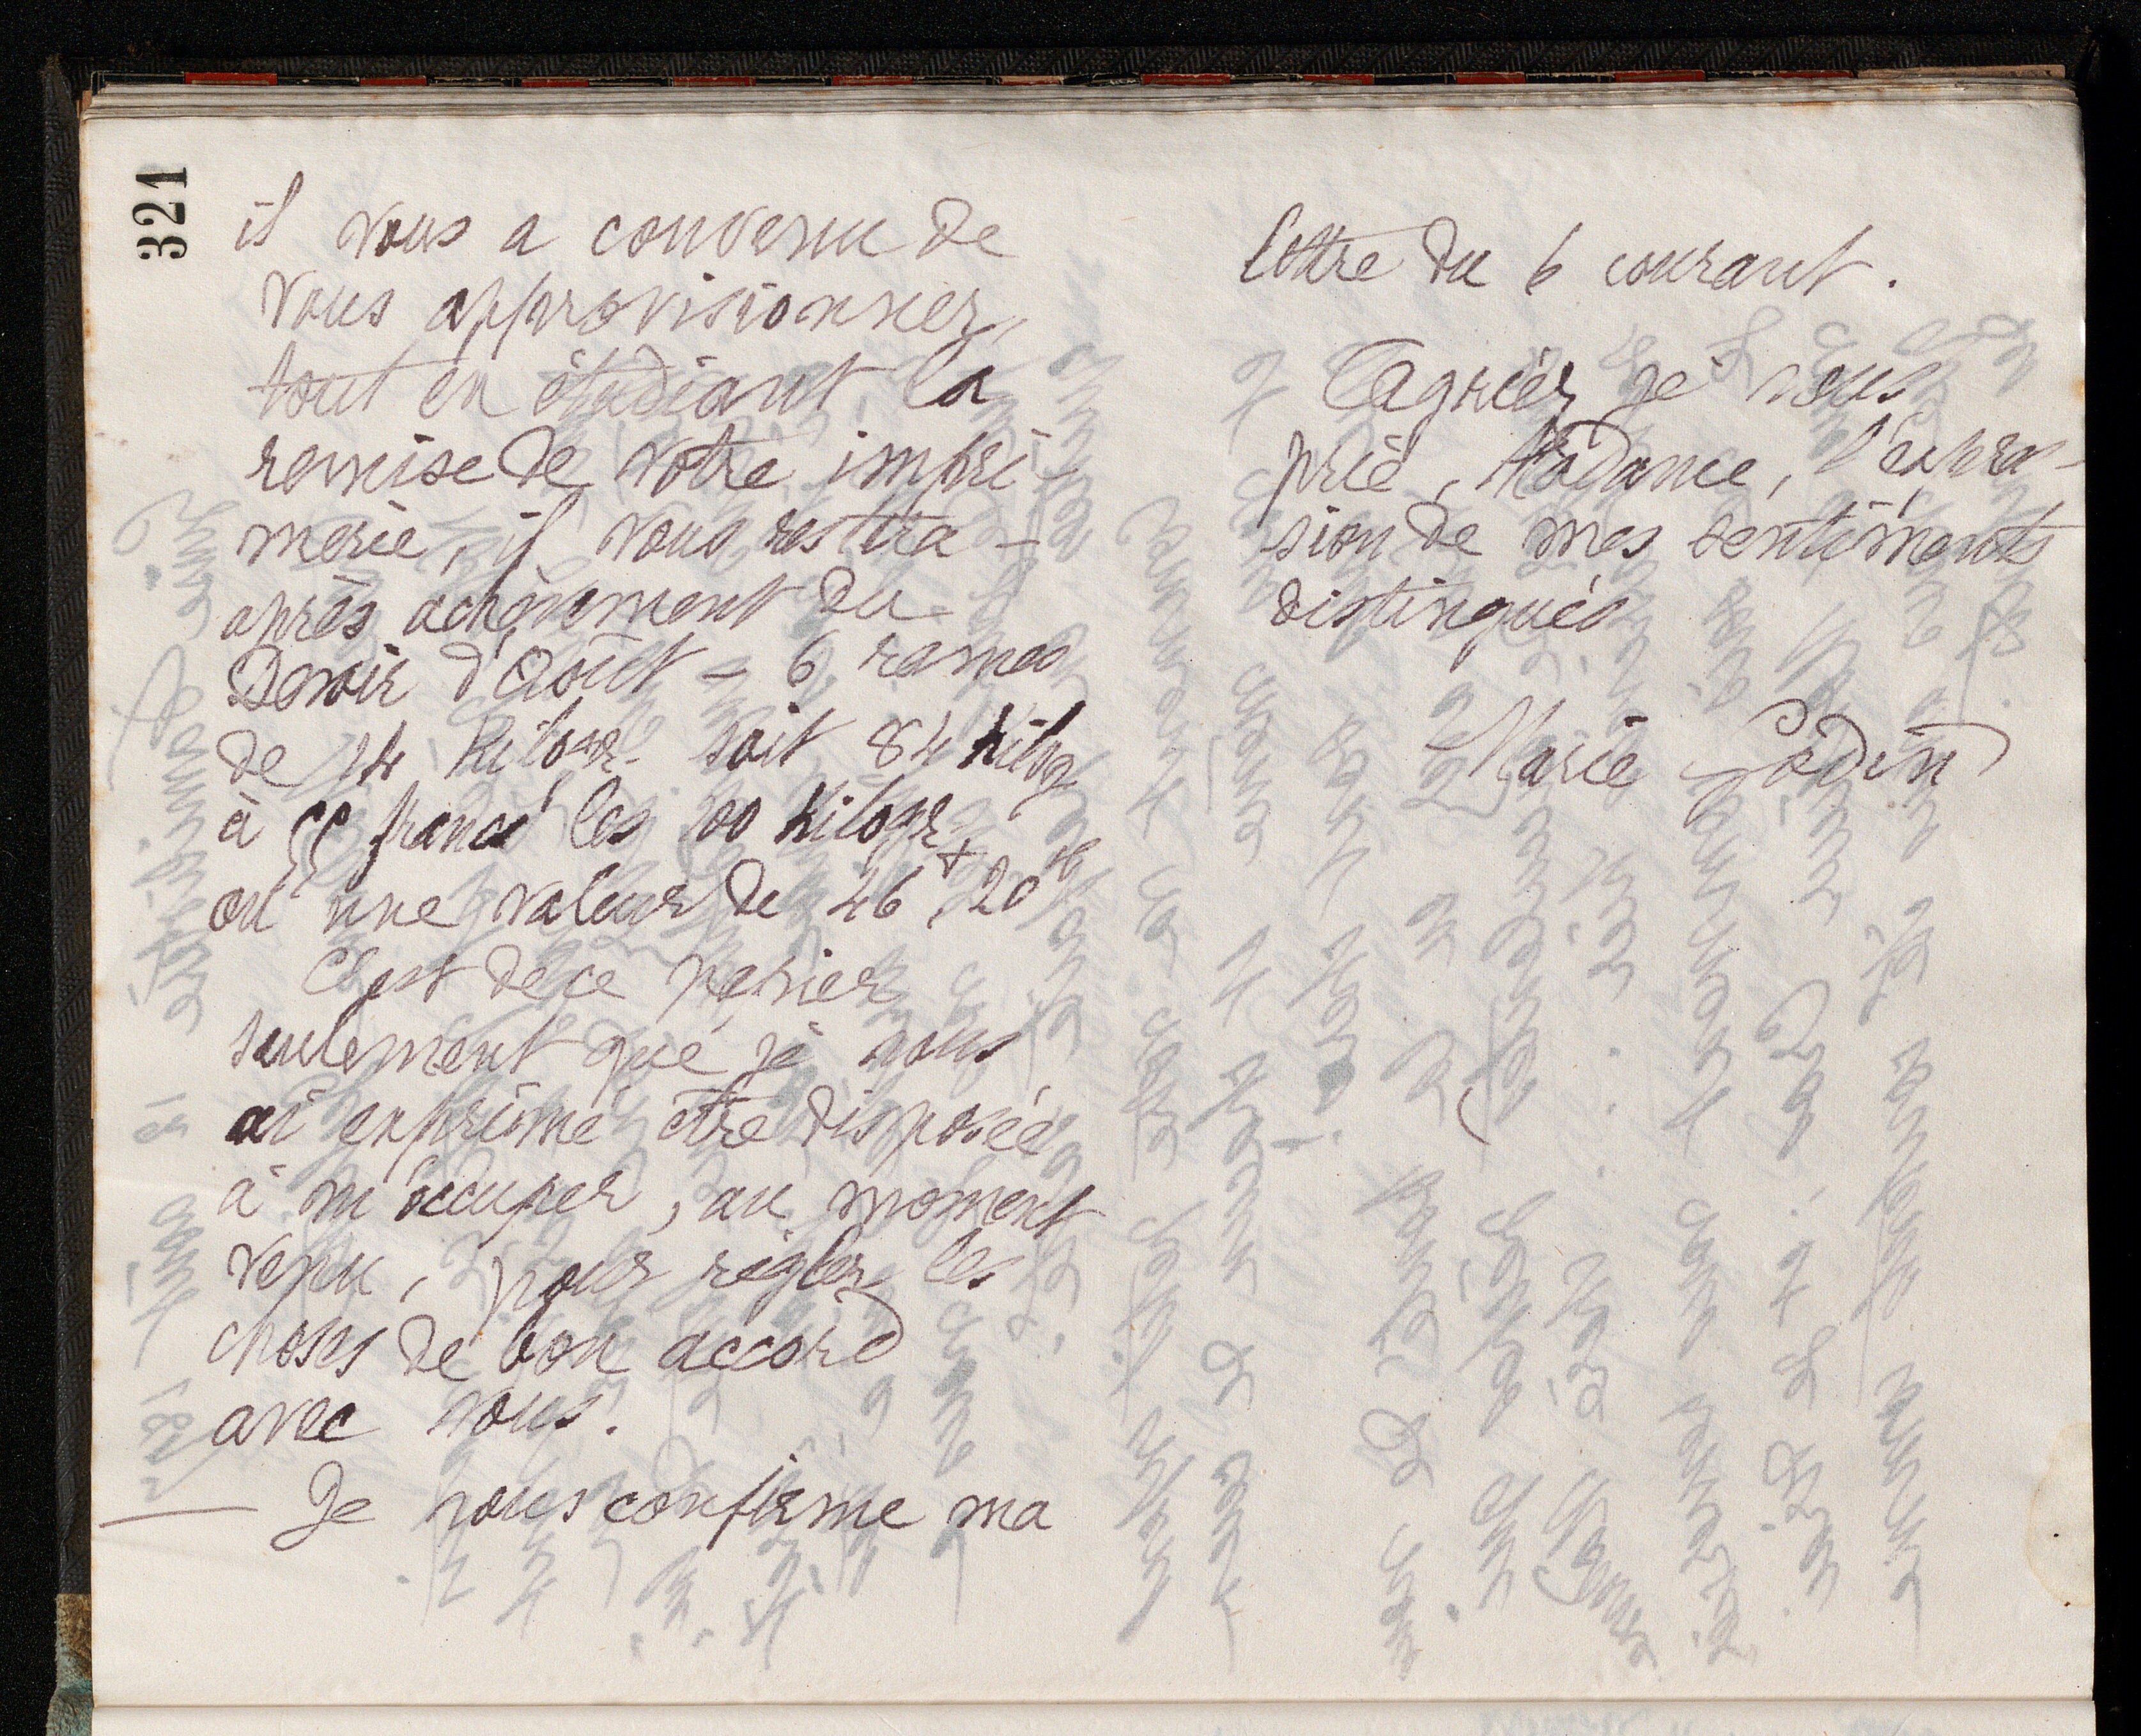 321
il vous a convenu de
vous approvisionner,
tout en étudiant la
remise de votre impri-
merie, il vous restera -
après achèvement du
Devoir d'Août - 6 rames
de 14 Kilogr. soit 84 Kilog
à 55 francs les 100 Kilogr
ou une valeur de 46f, 20c
C'est de ce papier
seulement que je vous
ai exprimé être disposée
à m'occuper, au moment
venu, pour régler les
choses de bon accord
avec vous.
Je vous confirme ma
lettre du 6 courant.
Agréez je vous
prie, Madame, l'expres-
sion de mes sentiments
distingués
Marie Godin